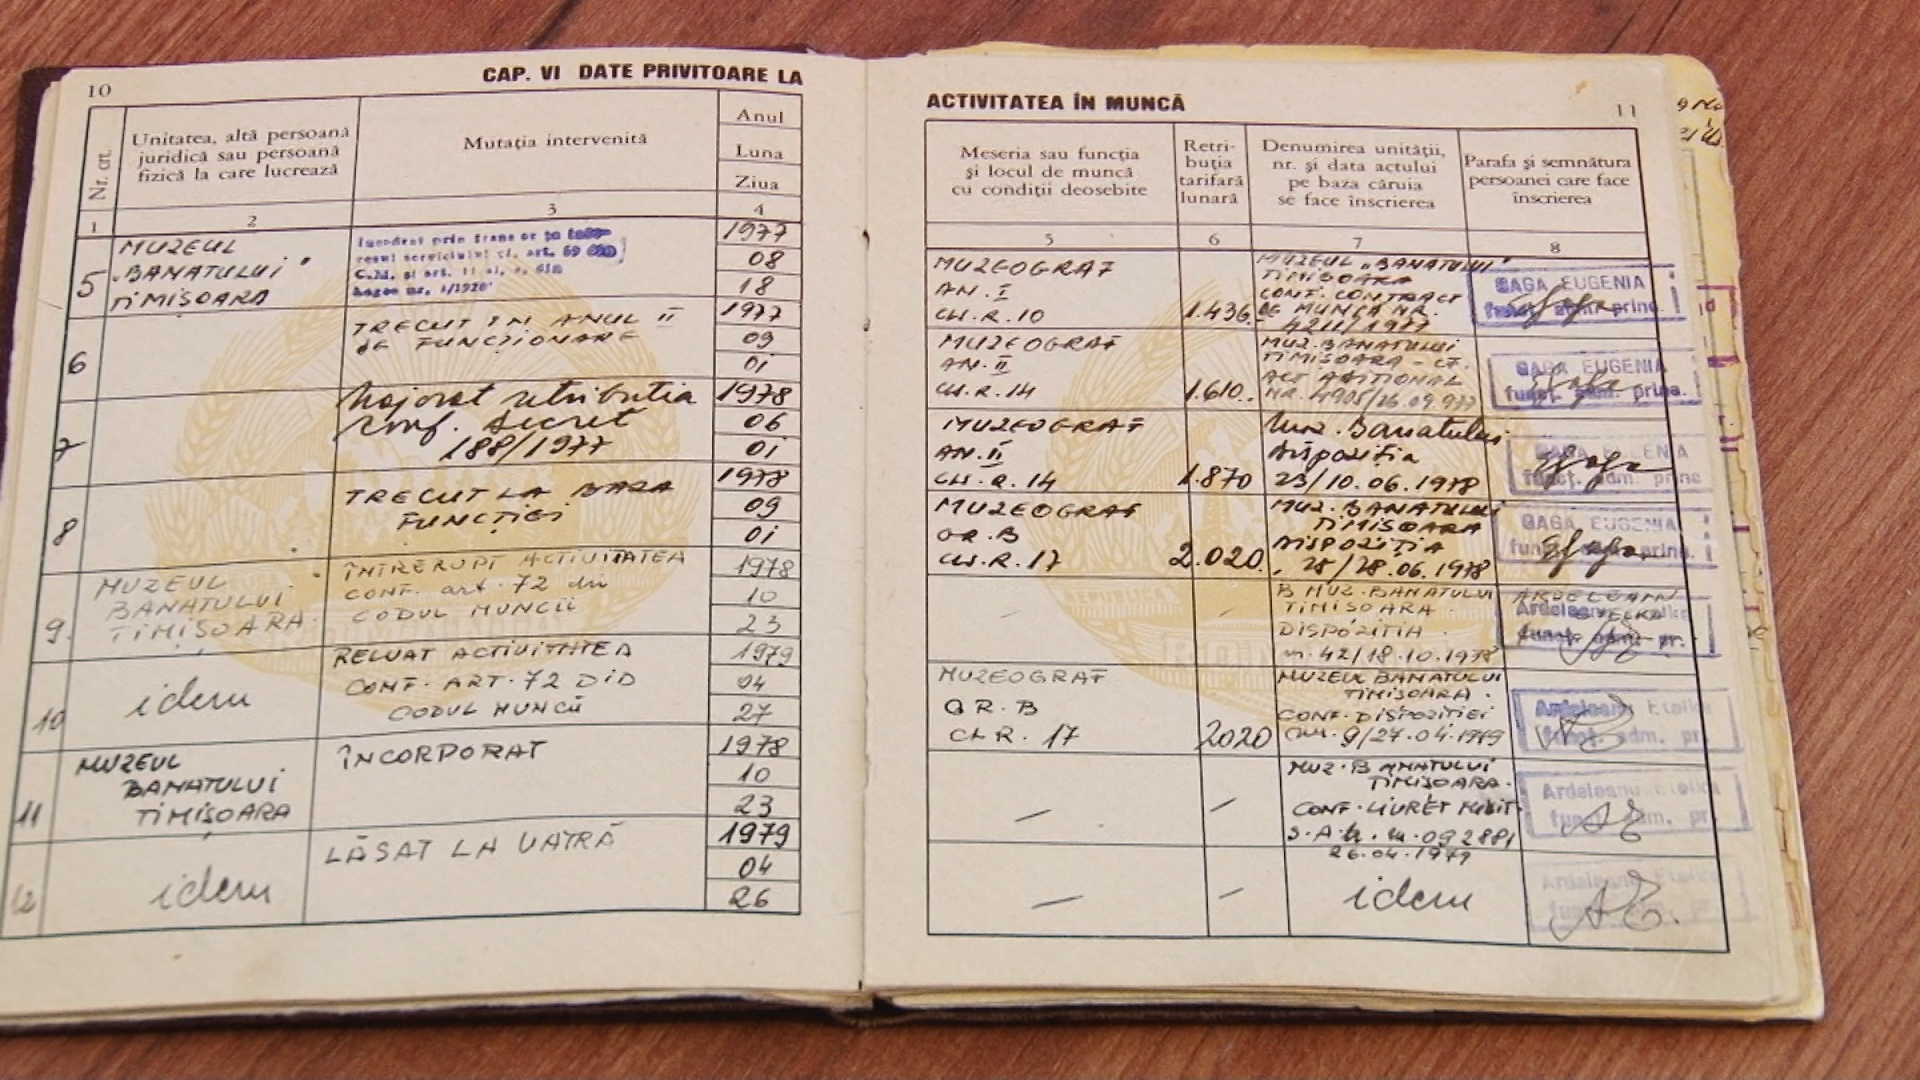 10
CAP. VI DATE PRIVITOARE LA
Nr. crt.
Unitatea, altă persoană
juridică sau persoană
fizică la care lucrează
Mutația intervenită
Anul
Luna
Ziua
1
2
3
4
5
MUZEUL
"BANATULUI"
TIMIȘOARA
resul serviciului cf. art. 69
C.M. și art. 11 al.
Legea nr. 1/1970
1977
08
18
6
TRECUT IN ANUL II
DE FUNCȚIONARE
1977
09
01
7
Majorat retributia
conf. Decret
188/1977
1978
06
01
8
TRECUT LA BAZA
FUNCȚIEI
1978
09
01
9.
MUZEUL
BANATULUI
TIMIȘOARA.
ÎNTRERUPT ACTIVITATEA
CONF. art. 72 din
CODUL MUNCII
1978
10
23
10
idem
RELUAT ACTIVITATEA
CONF. ART. 72 DID
CODUL MUNCii
1979
04
27
11
MUZEUL
BANATULUI
TIMIȘOARA
ÎNCORPORAT
1978
10
23
12
idem
LĂSAT LA VATRĂ
1979
04
26
ACTIVITATEA ÎN MUNCĂ
11
Meseria sau funcția
și locul de muncă
cu condiții deosebite
Retri-
buția
tarifară
lunară
Denumirea unității,
nr. și data actului
pe baza căruia
se face înscrierea
Parafa și semnătura
persoanei care face
înscrierea
5
6
7
8
MUZEOGRAF
AN. I
CL. R. 10
1.436.
MUZEUL "BANATULUI"
TIMIȘOARA
CONF. CONTRACT
DE MUNCA NR.
4211/1977
GAGA EUGENIA
funcț. adm. princ.
MUZEOGRAF
AN. II
CL. R. 14
1.610.
MUZ. BANATULUI
TIMIȘOARA - CF.
ACT ADIȚIONAL
NR. 4905/26.09.977
GAGA EUGENIA
funcț. adm. princ.
MUZEOGRAF
AN. II
CL. R. 14
1.870
Muz. Banatului
Dispoziția
23/10.06.1978
GAGA EUGENIA
funcț. adm. princ
MUZEOGRAF
GR. B
CL. R. 17
2.020.
MUZ. BANATULUI
TIMIȘOARA
DISPOZIȚIA
28/28.06.1978
GAGA EUGENIA
funcț. adm. princ.
MUZ. BANATULUI
TIMIȘOARA.
DISPOZITIA
nr. 42/18.10.1978
Ardeleanu Etelka
funcț. adm. pr.
MUZEOGRAF
GR. B
CL R. 17
2020
MUZEUL BANATULUI
TIMIȘOARA.
CONF. DISPOZITIEI
nr. 9/27.04.1979
Ardeleanu Etelka
funcț. adm. pr.
MUZ. BANATULUI
TIMIȘOARA.
CONF. LIVRET MILIT.
092881
26.04.1979
Ardeleanu Etelka
funcț. adm. pr.
idem
Ardeleanu Etelka